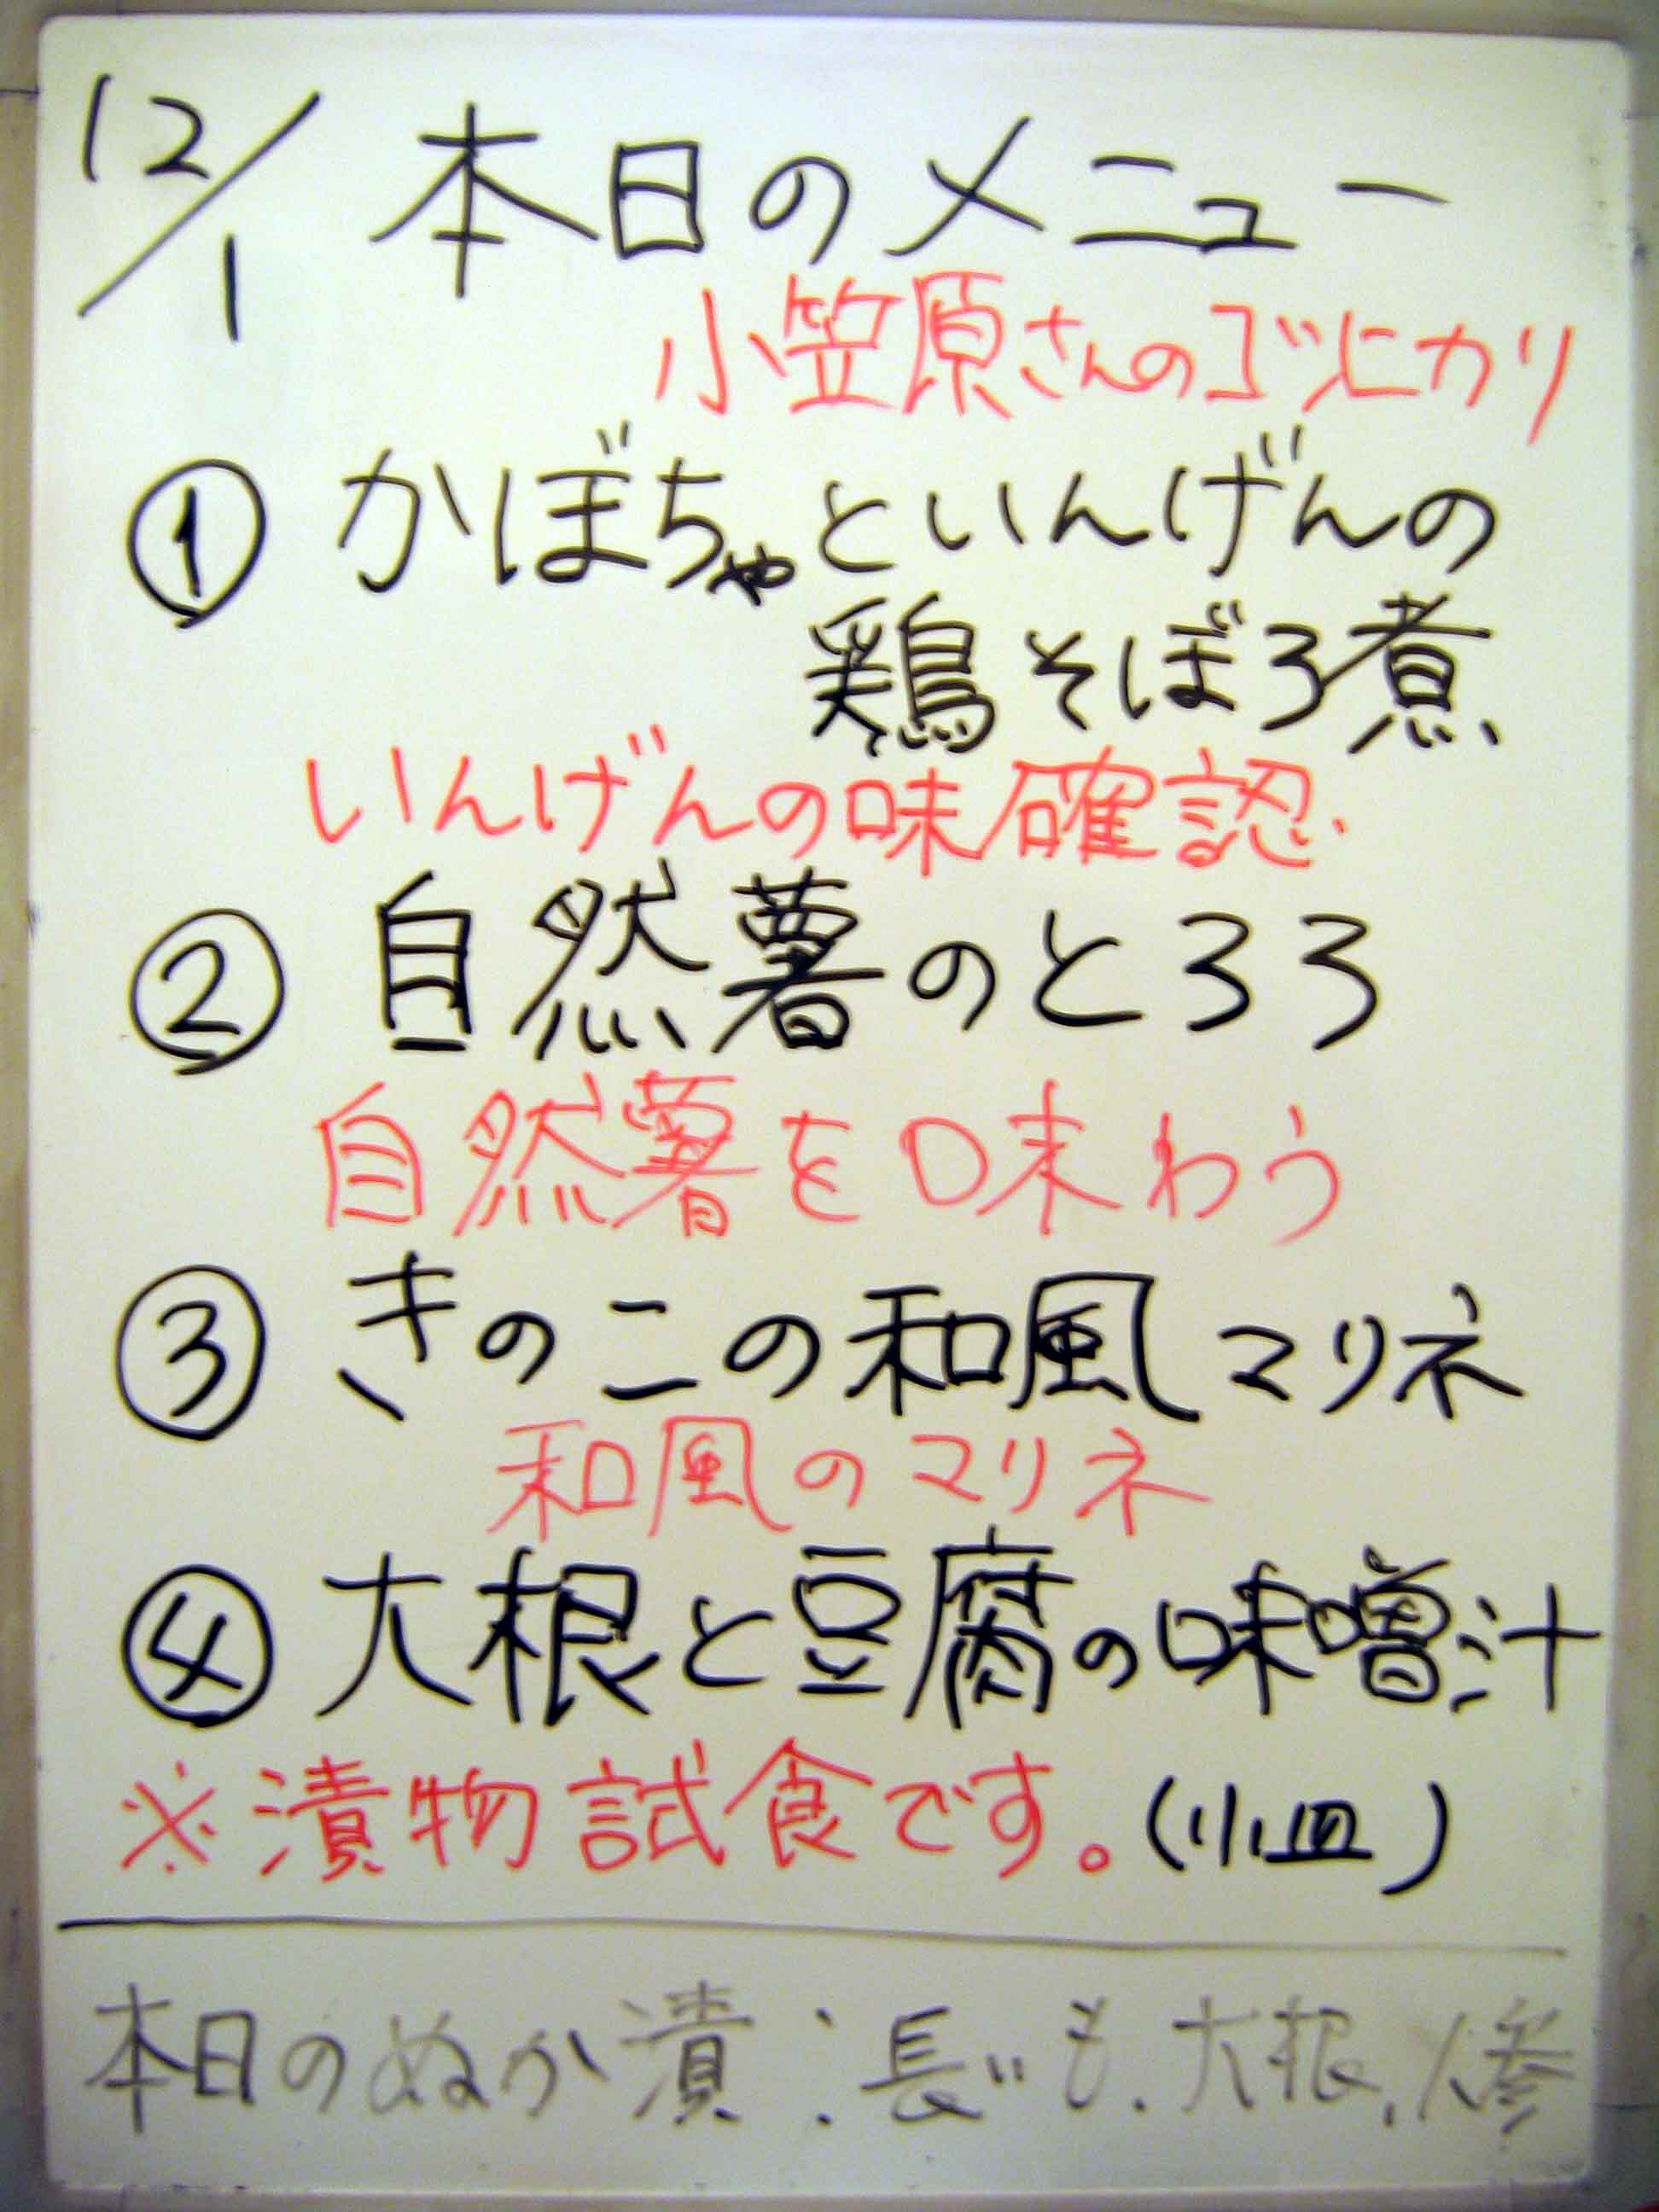 12/1 本日のメニュー
小笠原さんのコシヒカリ
① かぼちゃといんげんの
鶏そぼろ煮
いんげんの味確認
② 自然薯のとろろ
自然薯を味わう
③ きのこの和風マリネ
和風のマリネ
④ 大根と豆腐の味噌汁
※漬物試食です。(小皿)
本日のぬか漬:長いも、大根、人参